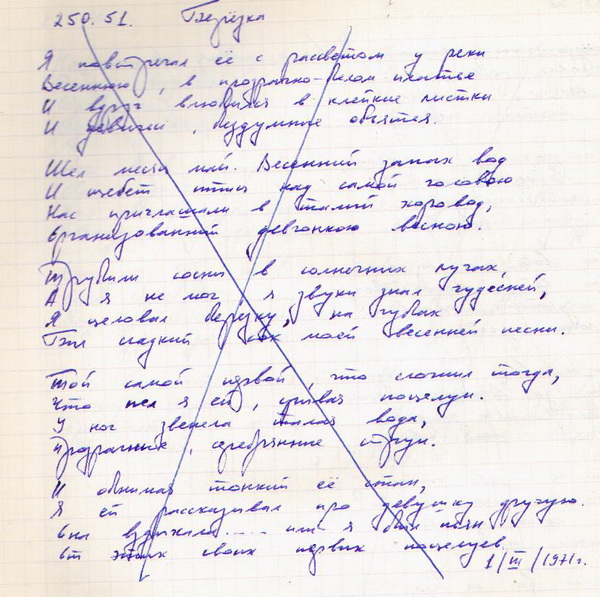 250. 51. Берёзка
Я повстречал её с рассветом у реки
Весеннюю, в прозрачно-белом платье
И вдруг влюбился в клейкие листки
И девичьи, бездумные объятья.
Шел месяц май. Весенний запах вод
И щебет птиц над самой головою
Нас приглашали в талый хоровод,
Организованный девчонкою весною.
Трубили сосны в солнечных лучах,
А я не мог, я звуки знал чудесней,
Я целовал берёзку, на губах
Был сладкий сок моей весенней песни.
Той самой первой, что сложил тогда,
Что пел я ей, срывая поцелуи.
У ног звенела талая вода,
Прозрачные, серебрянные струи.
И обнимая тонкий её стан,
Я ей рассказывал про девушку другую.
Она вздыхала.... или я был пьян
От этих своих первых поцелуев.
1/III/1971г.